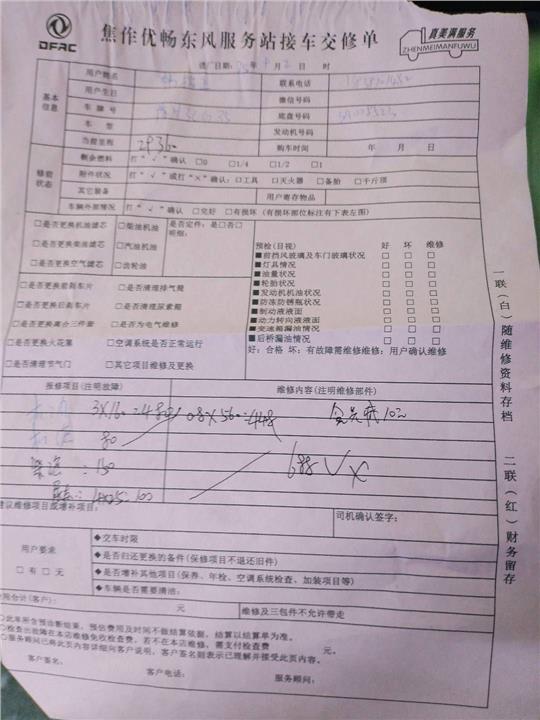 DFAC
焦作优畅东风服务站接车交修单
真美满服务
ZHENMEIMANFUWU
日期: 年 月 2 日
基本信息
用户姓名
联系电话
用户生日
微信号码
车牌号
底盘号码
车型
发动机号码
当前里程 2936
购车时间 年 月 日
修前状态
剩余燃料 打“√”确认 □0 □1/4 □1/2 □1
附件状况 打“√”或打“×”确认: □工具 □灭火器 □备胎 □千斤顶
其它装备
用户寄存物品
车辆外部情况 打“√”确认 □完好 □有损坏 (有损坏部位标注有下表左图)
□是否更换机油滤芯 □柴油机油 是否定件: 是□否□
明细:
□是否更换柴油滤芯 □汽油机油
□是否更换空气滤芯 □齿轮油
□是否更换前刹车片 □是否清理排气筒
□是否更换后刹车片 □是否清理尿素箱
□是否更换离合三件套 □是否为电气维修
□是否更换火花塞 □空调系统是否正常运行
□是否清理节气门 □其它项目维修及更换
预检(目视) 好 坏 维修
■前挡风玻璃及车门玻璃状况 □ □ □
■灯具情况 □ □ □
■油量状况 □ □ □
■轮胎状况 □ □ □
■发动机机油状况 □ □ □
■防冻防锈瓶状况 □ □ □
■制动液液面 □ □ □
■动力转向液液面 □ □ □
■变速箱漏油情况 □ □ □
■后桥漏油情况 □ □ □
好: 合格 坏: 有故障需维修维修: 用户确认维修
报修项目(注明故障)
维修内容(注明维修部件)
3×160=480
0.8×560=448
会员减10%
80
: 130
688
: 4×25=100
建议维修项目或增补项目:
司机确认签字:
用户要求
□有 □无
◆交车时限
◆是否归还更换的备件(保修项目不退还旧件)
◆是否增补其他项目(保养、年检、空调系统检查、加装项目等)
◆车辆是否需要清洁:
合计(客户): 元
维修及三包件不允许带走
○此车所含预诊断结果,预估费用及时间不做结算依据,结算以结算单为准。
○检查出故障在本店维修免收检查费,若不在本店维修,需支付检查费 元。
○服务顾问已将此页内容详细向客户说明,客户签名则表示已理解并接受此页内容。
客户签名: 客户电话: 服务顾问:
一联(白)随维修资料存档
二联(红)财务留存